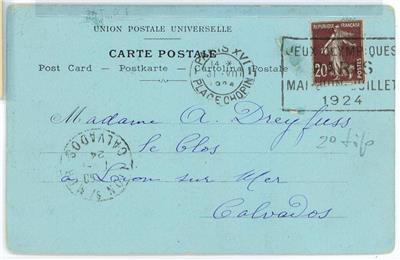 UNION POSTALE UNIVERSELLE
CARTE POSTALE
Post Card — Postkarte — Cartolina Postale
PARIS XVI
14 *
31 - VII
1924
PLACE CHOPIN
RÉPUBLIQUE FRANÇAISE
20
POSTES
JEUX OLYMPIQUES
PARIS
MAI JUIN JUILLET
1924
Madame A. Dreyfuss
le Clos
à Lyon sur Mer
Calvados
CALVADOS
24